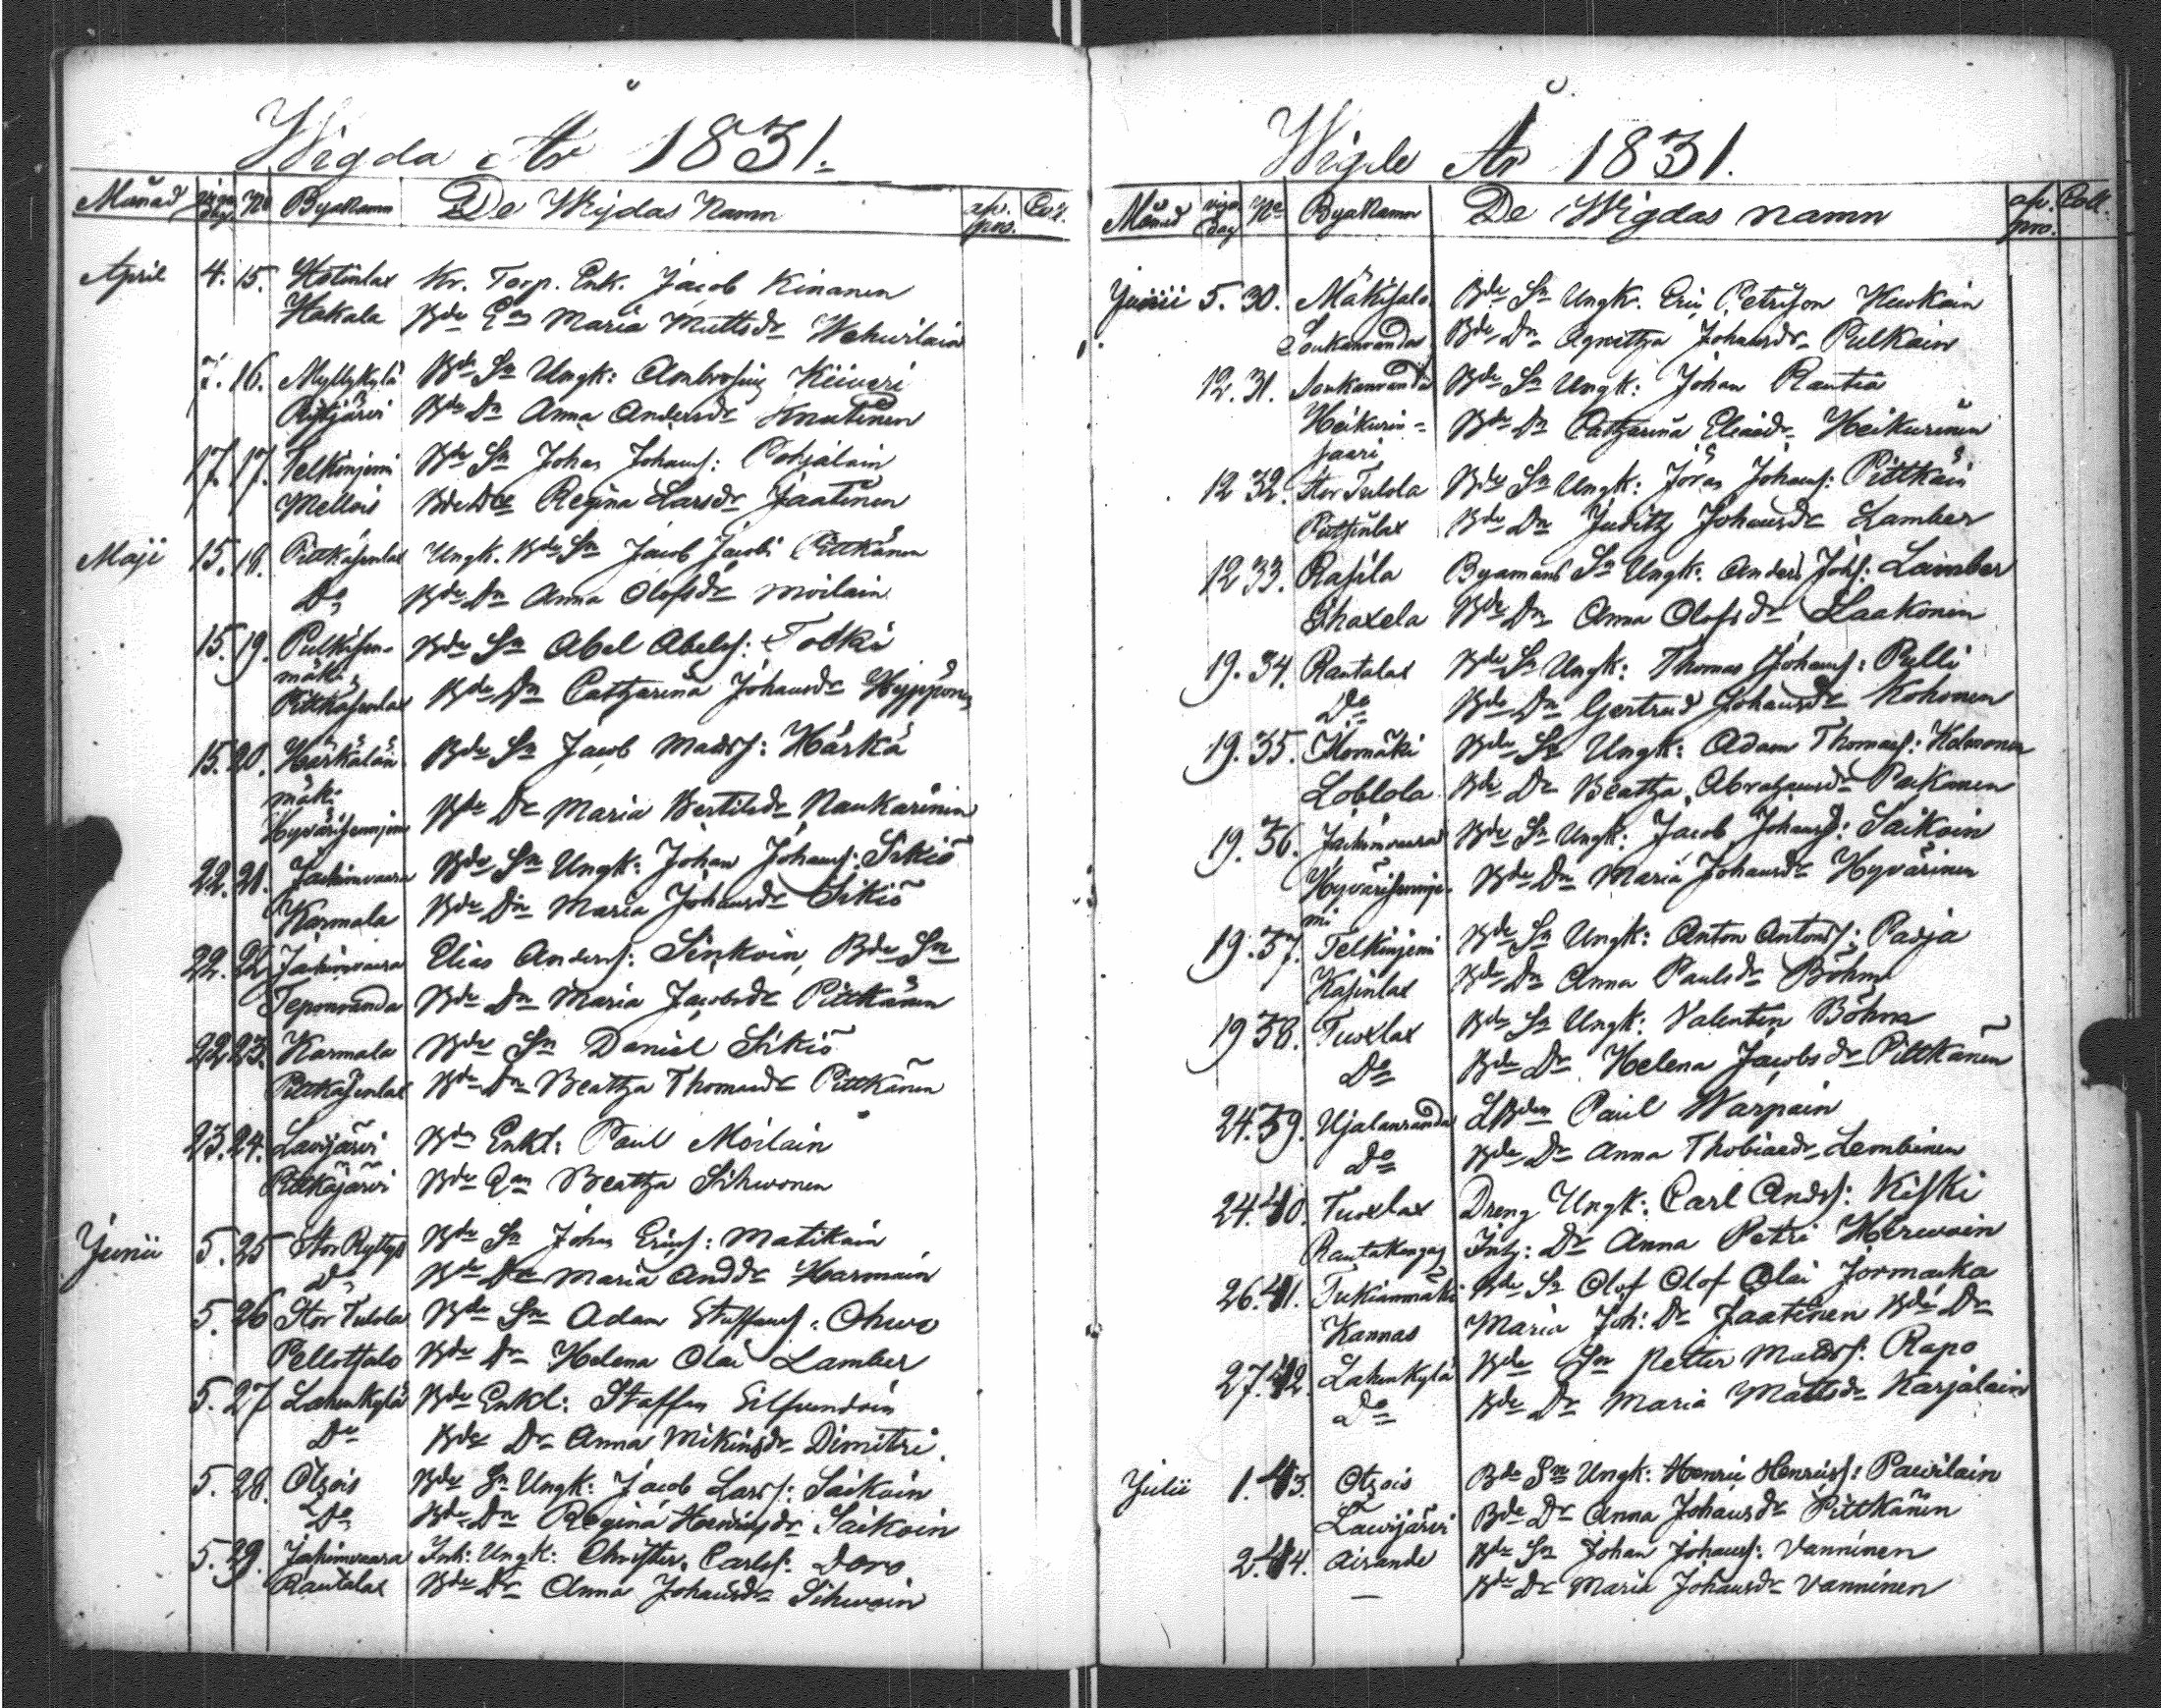 Wigda År 1831.
Månad wign. dag No Byanamn De Wigdas Namn af. pro. Coll.
April 4. 15. Hotinlax Kr. Torp. Enk. Jacob Kinanen
Hakala Bde En Maria Mattsdr Wehwiläin
7. 16. Myllykylä Bde Sn Ungk: Ambrosius Kiiveri
Ristjärvi Bde Dn Anna Andersdr Knutinen
17. 17. Telkinjemi Bde Sn Johan Johanss: Pohjalain
Mellois Bde Dn Regina Larsdr Jaatinen
Maji 15. 18. Pittkäsenlax Ungk. Bde Sn Jacob Jacobs Pittkänen
Do Bde Dn Anna Olofsdr Moilain
15. 19. Pulkisen- Bde Sn Abel Abelss: Tolki
mäki
Pittkäsenlax Bde Dn Catharina Johansdr Hyppönen
15. 20. Härkälän Bde Sn Jacob Madss: Härkä
mäki
Hyvärisennjemi Bde Dr Maria Bertilsdr Naukarinin
22. 21. Jackimvaara Bde Sn Ungk: Johan Johanss: Sikiö
Karmala Bde Dn Maria Johansdr Sikiö
22. 22. Jackimvaara Elias Anderss: Sinkoin, Bde Sn
Teponranda Bde Dn Maria Jacobsdr Pittkänen
22 23. Karmala Bde Sn Daniel Sikiö
Pittkäsenlax Bde Dn Beatha Thomasdr Pittkänen
23. 24. Lavijärvi Bde Enkl: Paul Moilain
Pittkäjärvi Bde Qan Beatha Sihwonen
Junii 5. 25 Stor Ryttys Bde Sn Johan Ericss: Matikain
Do Bde Dr Maria Andsdr Harmain
5. 26 Stor Tulola Bde Sn Adam Staffanss: Ohwo
Pellotsalo Bde Dr Helena Olai Lamber
5. 27 Lahenkylä Bde Enkl: Staffan Silfvendoin
Do Bde Dr Anna Mikinsdr Dimitri.
5. 28. Otsois Bde Sn Ungk: Jacob Larss: Saikoin
Do Bde Dn Regina Henricsdr Saikoin
5. 29. Jackimvaara Inh: Ungk: Christer, Carlss: Doro
Rautalax Bde Dr Anna Johansdr Sihwoin
Wigde År 1831.
Månad wign dag No Byanamn De Wigdas namn af. pro. Coll.
Junii 5. 30. Mäkisalo Bde Sn Ungk. Eric Petrisson Kewkain
Soukanrandas Bde Dn Agnittha Johansdr Pulkain
12. 31. Soukanranda Bde Sn Ungk: Johan Rautia
Heikurin- Bde Dn Catharina Eliaedr Heikurinen
saari
12 32. Stor Tulola Bde Sn Ungk: Jöran Johanss: Pittkäin
Putsinlax Bde Dn Judith Johansdr Lamber
12 33. Rasila Byamans Sn Ungk: Anders Johs: Lamber
Ihaxela Bde Dn Anna Olofsdr Laakonen
19. 34. Rautalax Bde Sn Ungk: Thomas Johanss: Pulli
Do Bde Dn Gertrud Johansdr Kohonen
19. 35. Ilomäki Bde Sn Ungk: Adam Thomass: Kolmonen
Loblola Bde Dn Beatha Abrahamsdr Paikanen
19. 36. Jackimvaara Bde Sn Ungk: Jacob Johanss: Saikoin
Hyvärisennje- Bde Dn Maria Johansdr Hyvärinen
mi
19. 37. Telkinjemi Bde Sn Ungk: Anton Antonss: Parja
Kasinlax Bde Dn Anna Paulsdr Böhm
19 38. Tuoxlax Bde Sn Ungk: Valentin Böhm
Do Bde Dr Helena Jacobsdr Pittkänen
24. 39. Ujalanranda LBdn Paul Warpain
Do Bde Dr Anna Thobiaedr Lembinen
24. 40. Tuoxlax Dreng Ungk: Carl Andss: Kiski
Rautakangas Inh: Dr Anna Petri Hirwoin
26. 41. Tukianmäki Bde Sn Olof Olof Olai Jormacka
Kannas Maria Joh: Dr Jaatinen Bde Dr
27. 42. Lahenkylä Bde Sn Petter Madss: Rapo
Do Bde Dr Maria Mattsdr Karjalain
Julii 1. 43. Otsois Bde Sn Ungk: Henric Henricss: Pawilain
Lawijärvi Bde Dr Anna Johansdr Pittkänen
2. 44. Airande Bde Sn Johan Johanss: Vanninen
— Bde Dr Maria Johansdr Vanninen